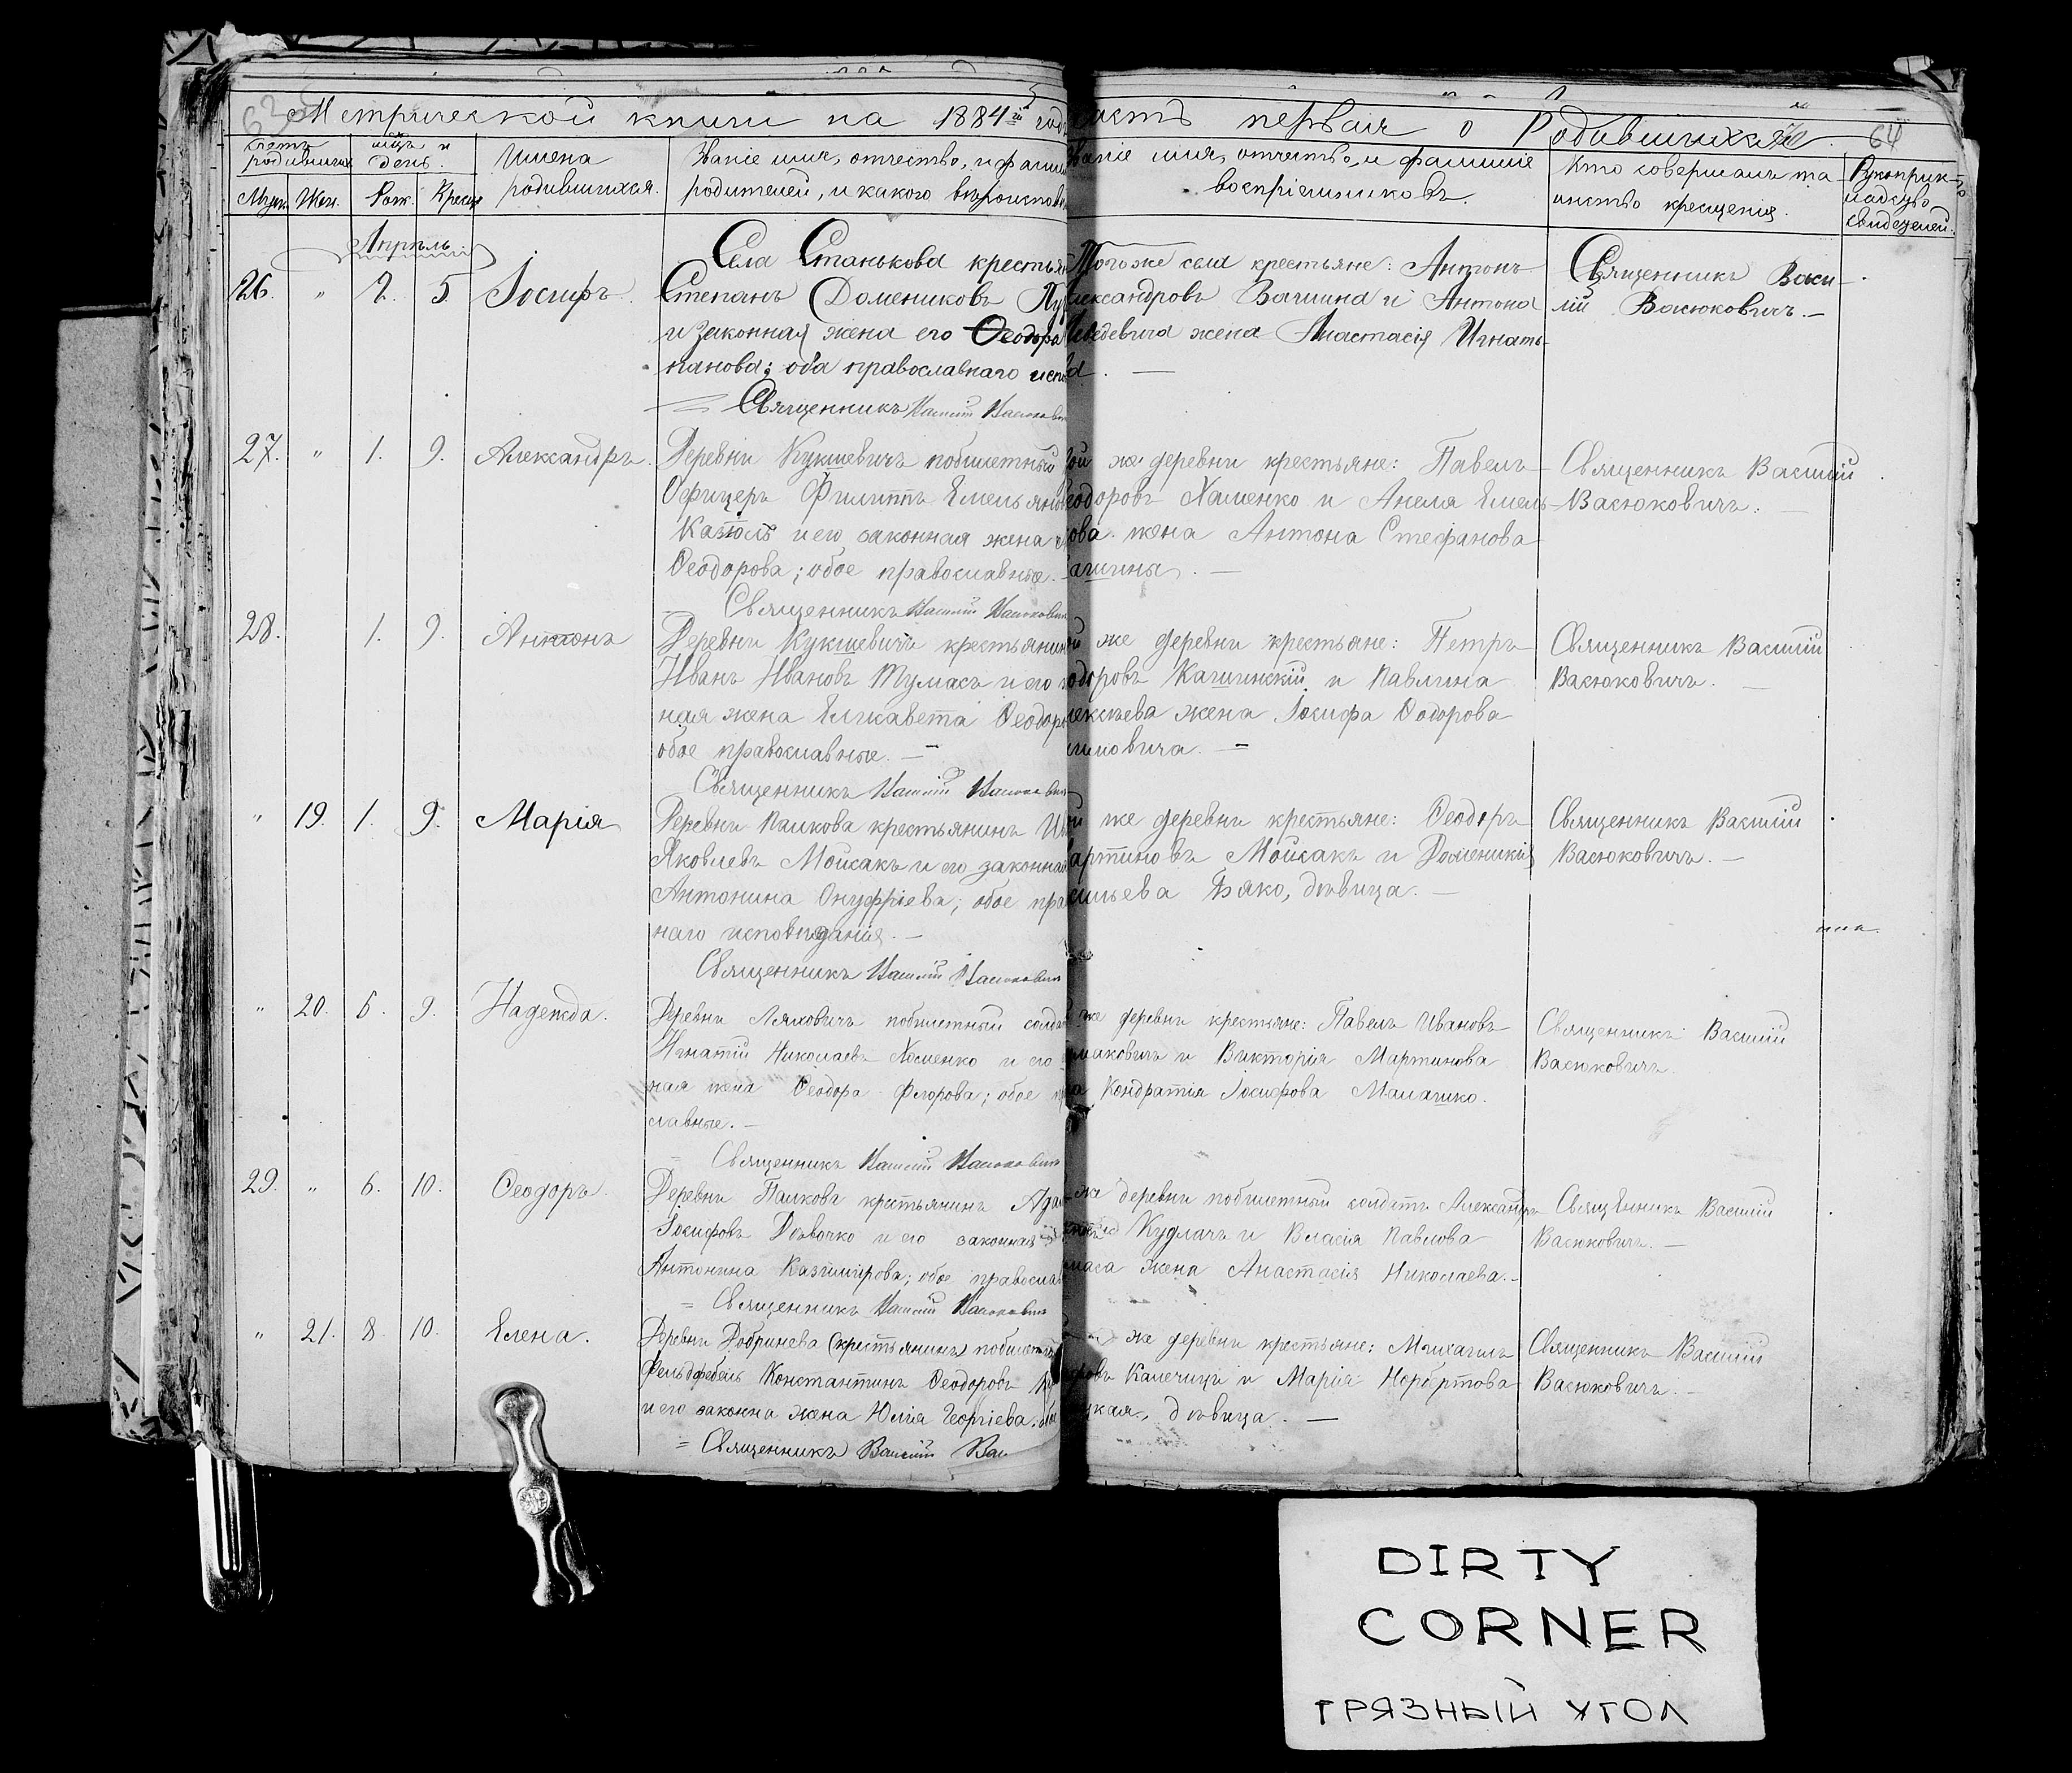 Метрической книги на 1884й годъ
часть первая о Родившихся.
64
Счетъ родившихся
мцъ и день.
Имена родившихся.
Званіе имя, отчество, и фамилія
родителей, и какого вѣроисповѣ
Званіе имя, отчество, и фамилія
воспріемниковъ.
Кто совершалъ та-
инство крещенія.
Рукоприк-
ладство
свидѣтелей.
Муж. Жен. Рож. Крещ.
Апрѣль.
26. " 2. 5. Іосифъ.
Села Станькова крестьян
Степанъ Домениковъ
и законная жена его Ѳеодора
панова; оба православнаго испо
Священникъ Василій Васюкович
Того же села крестьяне: Антонъ
Александровъ Вашина и Антона
жена Анастасія Игнать-
Священникъ Васи-
лій Васюковичъ.—
27. " 1. 9. Александръ.
Деревни Кукшевичъ побилетный
Офицеръ Филиппъ Емельянов
и его законная жена
Ѳеодорова; обое православные.—
Священникъ Василій Васюкович
ой же деревни крестьяне: Павелъ
еодоровъ Хоменко и Анеля Емель-
ова жена Антона Стефанова
ашины.—
Священникъ Василій
Васюковичъ.—
28. 1. 9. Антонъ
Деревни Кукшевичъ крестьянин
Иванъ Ивановъ Тумасъ и его
ная жена Елисавета Ѳеодор
обое православные.—
Священникъ Василій Васюкович
й же деревни крестьяне: Петръ
одоровъ Кашинскій и Павлина
лексѣева жена Іосифа Ѳодорова
имовича.—
Священникъ Василій
Васюковичъ.—
" 19. 1. 9. Марія
Деревни Палкова крестьянинъ
Яковлевъ Мойсакъ и его законная
Антонина Онуфріева; обое пра
наго исповѣданія.—
Священникъ Василій Васюкович
й же деревни крестьяне: Ѳеодоръ
артиновъ Мойсакъ и Доменикія
сильева Бяко, дѣвица.—
Священникъ Василій
Васюковичъ.—
" 20. 6. 9. Надежда.
Деревни Ляховичъ побилетный солда
Игнатій Николаевъ Хоменко и его
ная жена Ѳеодора Ѳегорова; обое
славные.—
Священникъ Василій Васюкович
же деревни крестьяне: Павелъ Ивановъ
маковичъ и Викторія Мартинова
на Кондратія Іосифова Малашко.
Священникъ Василій
Васюковичъ
29. " 6. 10. Ѳеодоръ.
Деревни Палковъ крестьянинъ Ада
Іосифовъ Довочко и его законная
Антонина Казимирова; обое православ
Священникъ Василій Васюкович
же деревни побилетный солдатъ Александръ
Кудлачъ и Власія Павлова
маса жена Анастасія Николаева.—
Священникъ Василій
Васюковичъ.—
" 21. 8. 10. Елена.
Деревни Добринева (крестьянинъ) побилетн
Фельдфебель Константинъ Ѳеодоровъ
и его законна жена Юлія Георгіева.
= Священникъ Василій Вас
же деревни крестьяне: Михаилъ
Капечицъ и Марія Норбертова
цкая, дѣвица.—
Священникъ Василій
Васюковичъ.—
DIRTY
CORNER
ГРЯЗНЫЙ УГОЛ